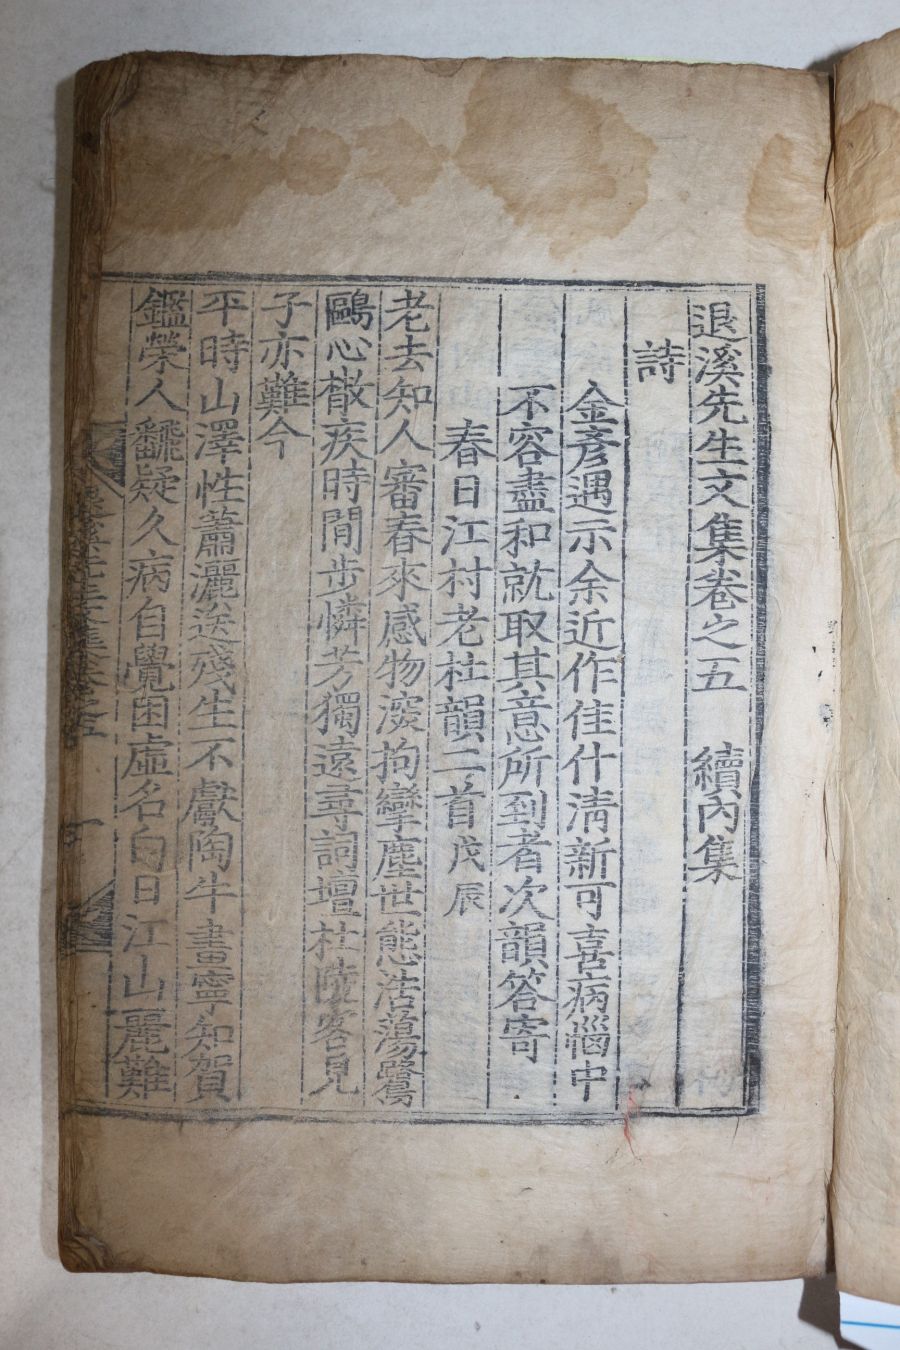 退溪先生文集卷之五 續內集
詩
金彥遇示余近作佳什清新可喜病惱中
不容盡和就取其意所到者次韻答寄
春日江村老杜韻二首戊辰
老去知人審春來感物深拘攣塵世態浩蕩鷺
鷗心散疾時閒步憐芳獨遠尋詞壇杜陵客見
子亦難今
平時山澤性蕭灑送殘生不獻陶牛畫寧知賀
鑑榮人飜疑久病自覺困虛名白日江山麗難